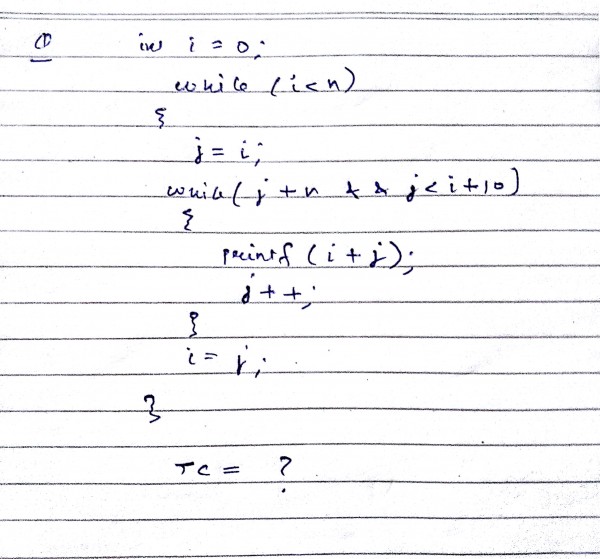 ①
int i = 0;
while (i<n)
{
j = i;
while( j + n && j < i+10)
{
printf (i + j);
j + +;
}
i = j;
}
TC = ?